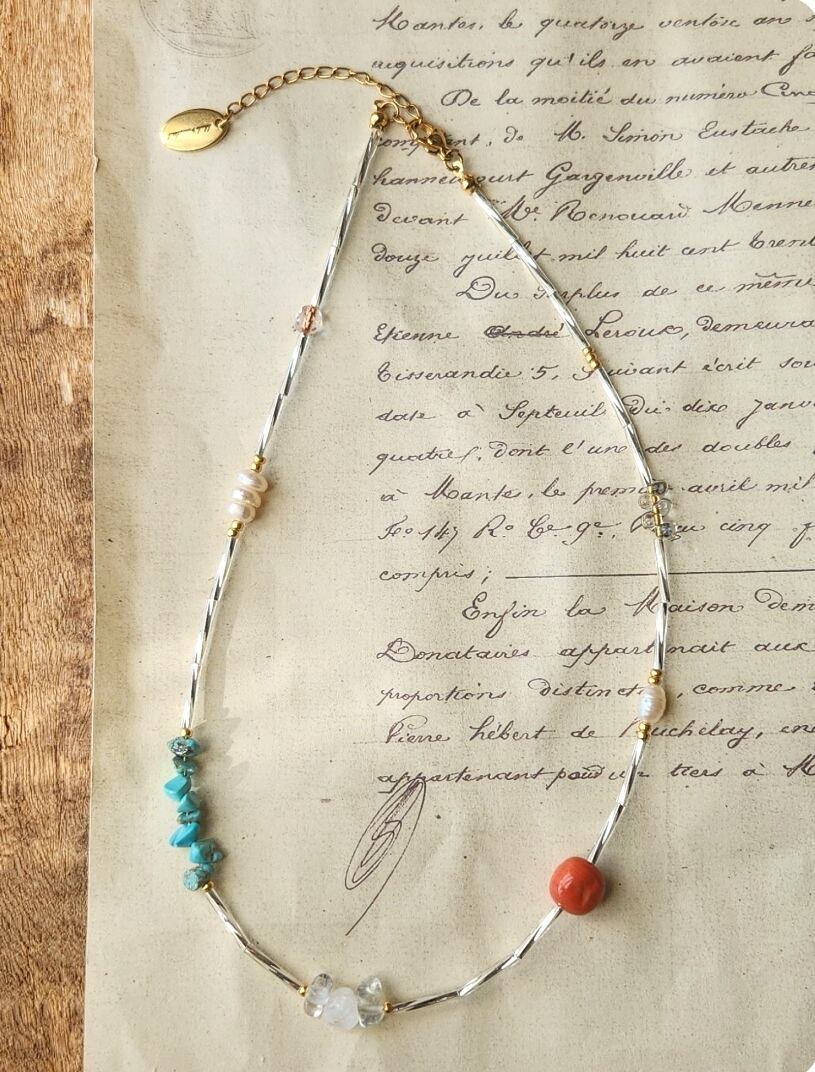 Mantes, le quatorze ventôse an
acquisitions qu'ils en avaient
De la moitié du numéro Cinq
de M. Simon Eustache
Gargenville et autres
devant Me. Renouard
douze juillet mil huit cent trent
Du surplus de ce même
Etienne André Leroux, demeura
Tisserandie 5, suivant écrit sou
date à Septeuil du dix Janv
quatre, dont l'un des doubles
à Mantes, le premier avril mil
Fo 147 Ro Ce 9e, cinq
compris;
Enfin la Maison dem
Donataires appartenait aux
proportions distinctes, comme
Pierre hébert de Buchelay, en
appartenant pour un tiers à M